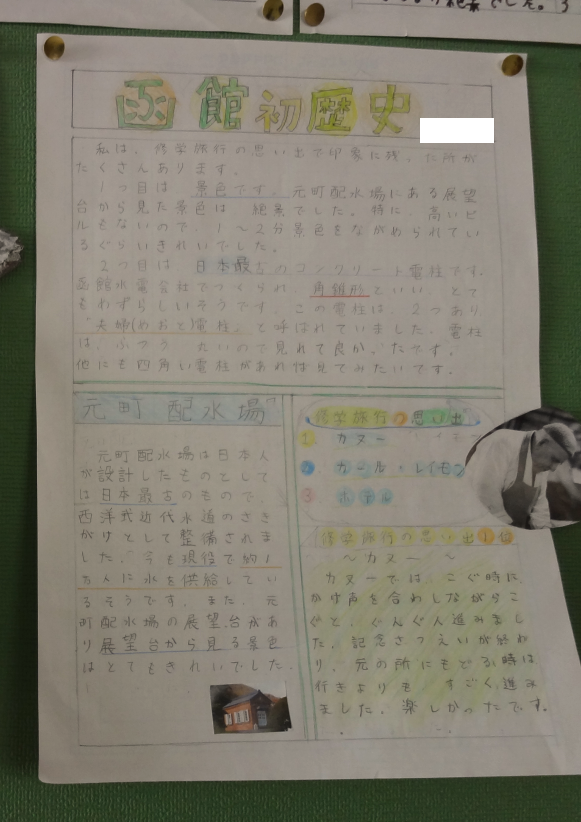 函館初歴史
私は、修学旅行の思い出で印象に残った所が
たくさんあります。
1つ目は、景色です。元町配水場にある展望
台から見た景色は、絶景でした。特に、高いビ
ルもないので、1〜2分景色をながめられてい
るぐらいきれいでした。
2つ目は、日本最古のコンクリート電柱です。
函館水電会社でつくられ、角錐形といい、とて
もめずらしいそうです。この電柱は、2つあり、
"夫婦(めおと)電柱"と呼ばれていました。電柱
は、ふつう、丸いので見れて良かったです。
他にも四角い電柱があれば見てみたいです。
元町配水場
元町配水場は日本人
が設計したものとして
は日本最古のもので、
西洋式近代水道のさき
がけとして整備されま
した。今も現役で約1
万人に水を供給してい
るそうです。また、元
町配水場の展望台があ
り展望台から見る景色
はとてもきれいでした。
修学旅行の思い出
1 カヌー
2 カール・レイモン
3 ホテル
修学旅行の思い出1位
〜カヌー〜
カヌーでは、こぐ時に、
かけ声を合わしながらこ
ぐと、ぐんぐん進みまし
た。記念さつえいが終わ
り、元の所にもどる時は
行きよりも、すごく進み
ました。楽しかったです。